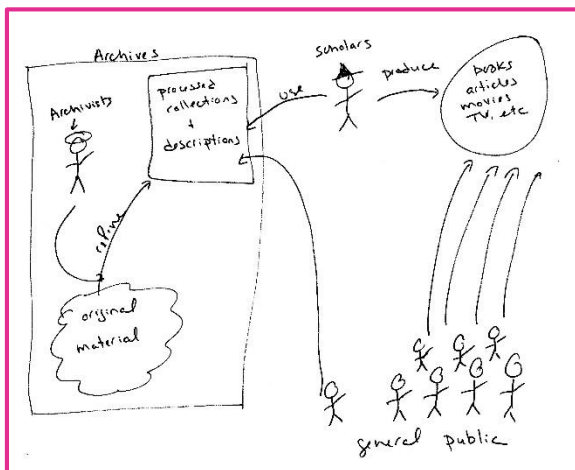 Archives
Archivists
processed
collections
+
descriptions
refine
original
material
scholars
use
produce
books
articles
movies
TV, etc
general public